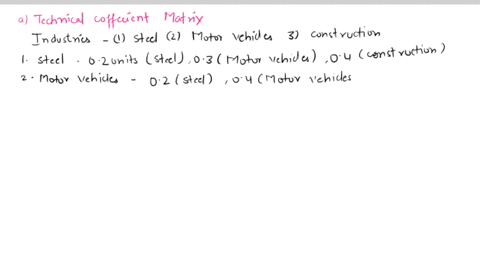 a) Technical cofferient Matrix
Industries - (1) steel (2) Motor vehicles 3) construction
1. steel - 0.2 units (steel), 0.3 (Motor vehicles), 0.4 (construction)
2. Motor vehicles - 0.2 (steel), 0.4 (Motor vehicles